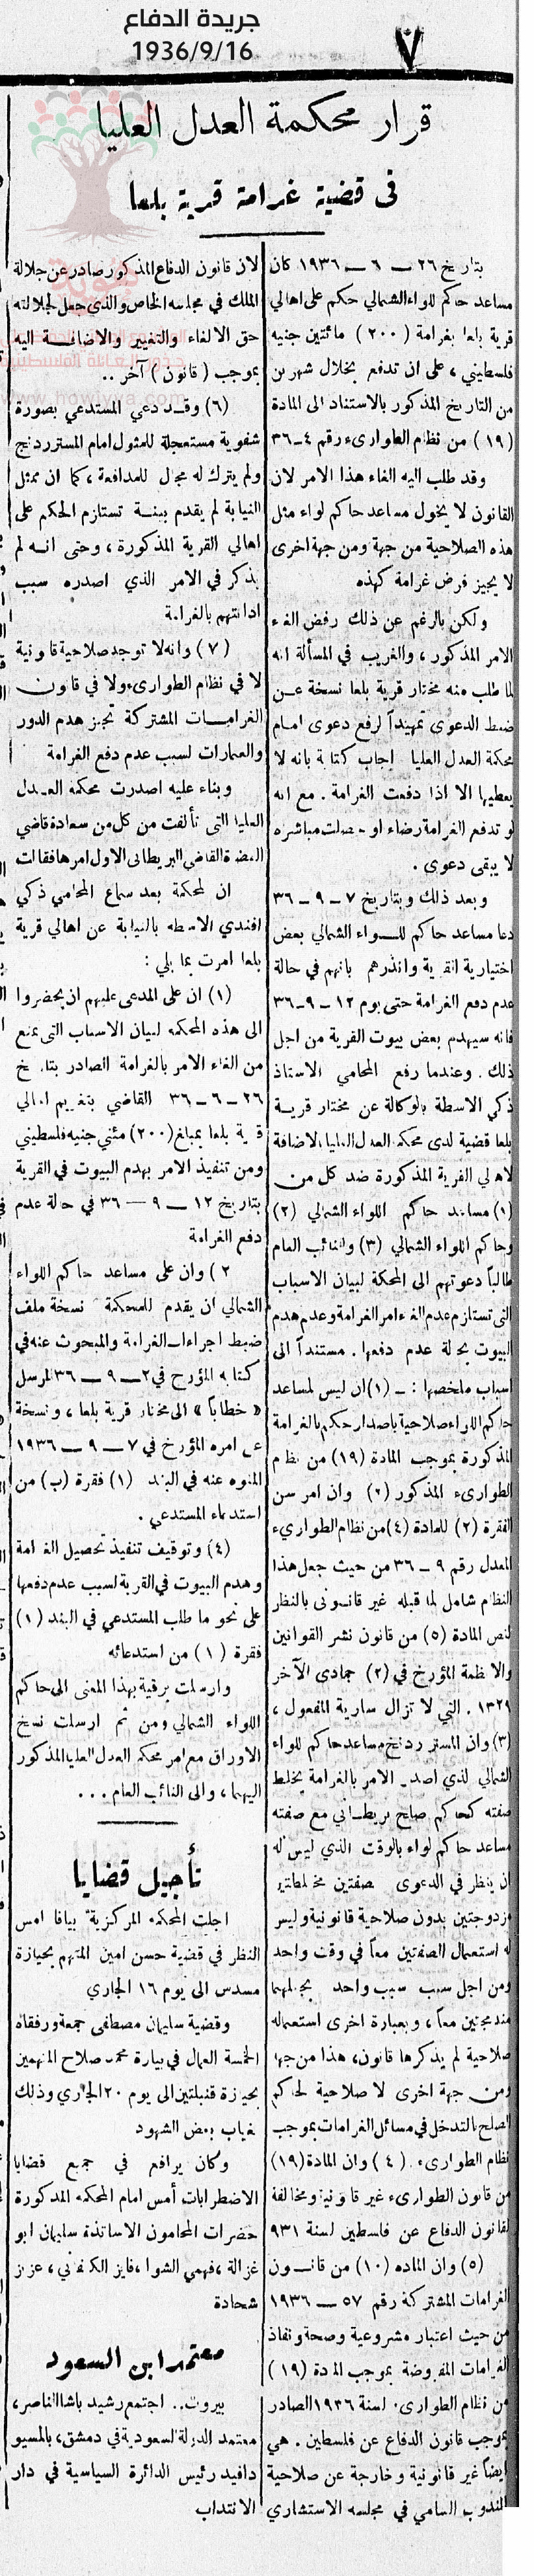 جريدة الدفاع
1936/9/16
٧
قرار محكمة العدل العليا
في قضية غرامة قرية بلعا
بتاريخ ٢٦ — ٦ — ١٩٣٦ كان
مساعد حاكم للواء الشمالي حكم على اهالي
قرية بلعا بغرامة (٢٠٠) مائتين جنيه
فلسطيني، على ان تدفع بخلال شهرين
من التاريخ المذكور بالاستناد الى المادة
(١٩) من نظام الطوارىء رقم ٤-٣٦
وقد طلب اليه الغاء هذا الامر لان
القانون لا يخول مساعد حاكم لواء مثل
هذه الصلاحية من جهة ومن جهة اخرى
لا يجيز فرض غرامة كهذه
ولكن بالرغم عن ذلك رفض الغاء
الامر المذكور، والغريب في المسألة انه
لما طلب منه مختار قرية بلعا نسخة عن
ضبط الدعوى تمهيداً لرفع دعوى امام
محكمة العدل العليا اجاب كتابة بانه لا
يعطيها الا اذا دفعت الغرامة. مع انه
لو تدفع الغرامة رضاء او حصلت مباشرة
لا يبقى دعوى.
وبعد ذلك وبتاريخ ٧ - ٩ - ٣٦
دعا مساعد حاكم للواء الشمالي بعض
اختيارية القرية وانذرهم بانهم في حالة
عدم دفع الغرامة حتى يوم ١٢ - ٩-٣٦
فانه سيهدم بعض بيوت القرية من اجل
ذلك. وعندما رفع المحامي الاستاذ
ذكي الاسطة بالوكالة عن مختار قرية
بلعا قضية لدى محكمة العدل العليا بالاضافة
لاهالي القرية المذكورة ضد كل من
(١) مساعد حاكم اللواء الشمالي (٢)
وحاكم اللواء الشمالي (٣) والنائب العام
طالباً دعوتهم الى المحكمة لبيان الاسباب
التى تستلزم عدم الغاء امر الغرامة وعدم هدم
البيوت بحالة عدم دفعها. مستنداً الى
اسباب ملخصها: - (١) ان ليس لمساعد
حاكم اللواء صلاحية باصدار حكم بالغرامة
المذكورة بموجب المادة (١٩) من نظام
الطوارىء المذكور (٢) وان امر سن
الفقرة (٢) للمادة (٤) من نظام الطوارىء
المعدل رقم ٩ - ٣٦ من حيث جعل هذا
النظام شامل لما قبله غير قانوني بالنظر
لنص المادة (٥) من قانون نشر القوانين
والانظمة المؤرخ في (٢) جمادى الآخر
١٣٢٩. التي لا تزال سارية المفعول،
(٣) وان المستر ردنج مساعد حاكم للواء
الشمالي الذي اصدر الامر بالغرامة يخلط
صفته كحاكم صلح بريطاني مع صفته
مساعد حاكم لواء بالوقت الذي ليس له
ان ينظر في الدعوى بصفتين مختلطتين
مزدوجتين بدون صلاحية قانونية وليس
له استعمال الصفتين معاً في وقت واحد
ومن اجل سبب واحد يجعلهما
مندمجتين معاً، وبعبارة اخرى استعماله
صلاحية لم يذكرها قانون، هذا من جهة
ومن جهة اخرى لا صلاحية لحاكم
الصلح بالتدخل في مسائل الغرامات بموجب
نظام الطوارىء. (٤) وان المادة (١٩)
من قانون الطوارىء غير قانونية ومخالفة
لقانون الدفاع عن فلسطين لسنة ٩٣١
(٥) وان الماده (١٠) من قانون
الغرامات المشتركة رقم ٥٧ — ١٩٣٦
من حيث اعتبار مشروعية وصحة ونفاذ
الغرامات المفروضة بموجب المادة (١٩)
من نظام الطوارىء لسنة ١٩٣٦ الصادر
بموجب قانون الدفاع عن فلسطين. هي
ايضاً غير قانونية وخارجة عن صلاحية
المندوب السامي في مجلسه الاستشاري
لان قانون الدفاع المذكور صادر عن جلالة
الملك في مجلسه الخاص والذي جعل لجلالته
حق الالغاء والتغيير والاضافة اليه
بموجب (قانون) آخر..
(٦) وقد دعي المستدعي بصورة
شفوية مستعجلة للمثول امام المستر ردنج
ولم يترك له مجال للمدافعة، كما ان ممثل
النيابة لم يقدم بينة تستلزم الحكم على
اهالي القرية المذكورة، وحتى انه لم
يذكر في الامر الذي اصدره سبب
ادانتهم بالغرامة
(٧) وانه لا توجد صلاحية قانونية
لا في نظام الطوارىء ولا في قانون
الغرامات المشتركة تجيز هدم الدور
والعمارات لسبب عدم دفع الغرامة
وبناء عليه اصدرت محكمة العدل
العليا التى تألفت من كل من سعادة قاضي
القضاة القاضي البريطاني الاول امرها فقالت
ان المحكمة بعد سماع المحامي ذكي
افندي الاسطه بالنيابة عن اهالي قرية
بلعا امرت بما يلي:
(١) ان على المدعى عليهم ان يحضروا
الى هذه المحكمة لبيان الاسباب التى تمنع
من الغاء الامر بالغرامة الصادر بتاريخ
٢٦-٦-٣٦ القاضي بتغريم اهالي
قرية بلعا بمبلغ (٢٠٠) مئتي جنيه فلسطيني
ومن تنفيذ الامر بهدم البيوت في القرية
بتاريخ ١٢ — ٩ — ٣٦ في حالة عدم
دفع الغرامة
٢) وان على مساعد حاكم اللواء
الشمالي ان يقدم للمحكمة نسخة ملف
ضبط اجراءات الغرامة والمبحوث عنه في
كتابه المؤرخ في ٢-٩-٣٦ المرسل
«خطاباً» الى مختار قرية بلعا، ونسخة
عن امره المؤرخ في ٧ — ٩ — ١٩٣٦
المنوه عنه في البند (١) فقرة (ب) من
استدعاء المستدعي.
(٤) وتوقيف تنفيذ تحصيل الغرامة
وهدم البيوت في القرية لسبب عدم دفعها
على نحو ما طلب المستدعي في البند (١)
فقرة (١) من استدعائه
وارسلت برقية بهذا المعنى الى حاكم
اللواء الشمالي ومن ثم ارسلت نسخ
الاوراق مع امر محكمة العدل العليا المذكور
اليهما، والى النائب العام...
تأجيل قضايا
اجلت المحكمة المركزية بيافا امس
النظر في قضية حسن امين المتهم بحيازة
مسدس الى يوم ١٦ الجاري
وقضية سليمان مصطفى جمعة ورفقاه
الخمسة العمال في بيارة محمد صلاح المتهمين
بحيازة قنبلتين الى يوم ٢٠ الجاري وذلك
لغياب بعض الشهود
وكان يرافع في جميع قضايا
الاضطرابات أمس امام المحكمة المذكورة
حضرات المحامون الاساتذة سليمان ابو
غزالة، فهمي الشوا، فايز الكنفاني، عزيز
شحادة
معتمد ابن السعود
بيروت.. اجتمع رشيد باشا الناصر،
معتمد الدولة السعودية في دمشق، بالمسيو
دافيد رئيس الدائرة السياسية في دار
الانتداب
هوية
www.howiyya.com